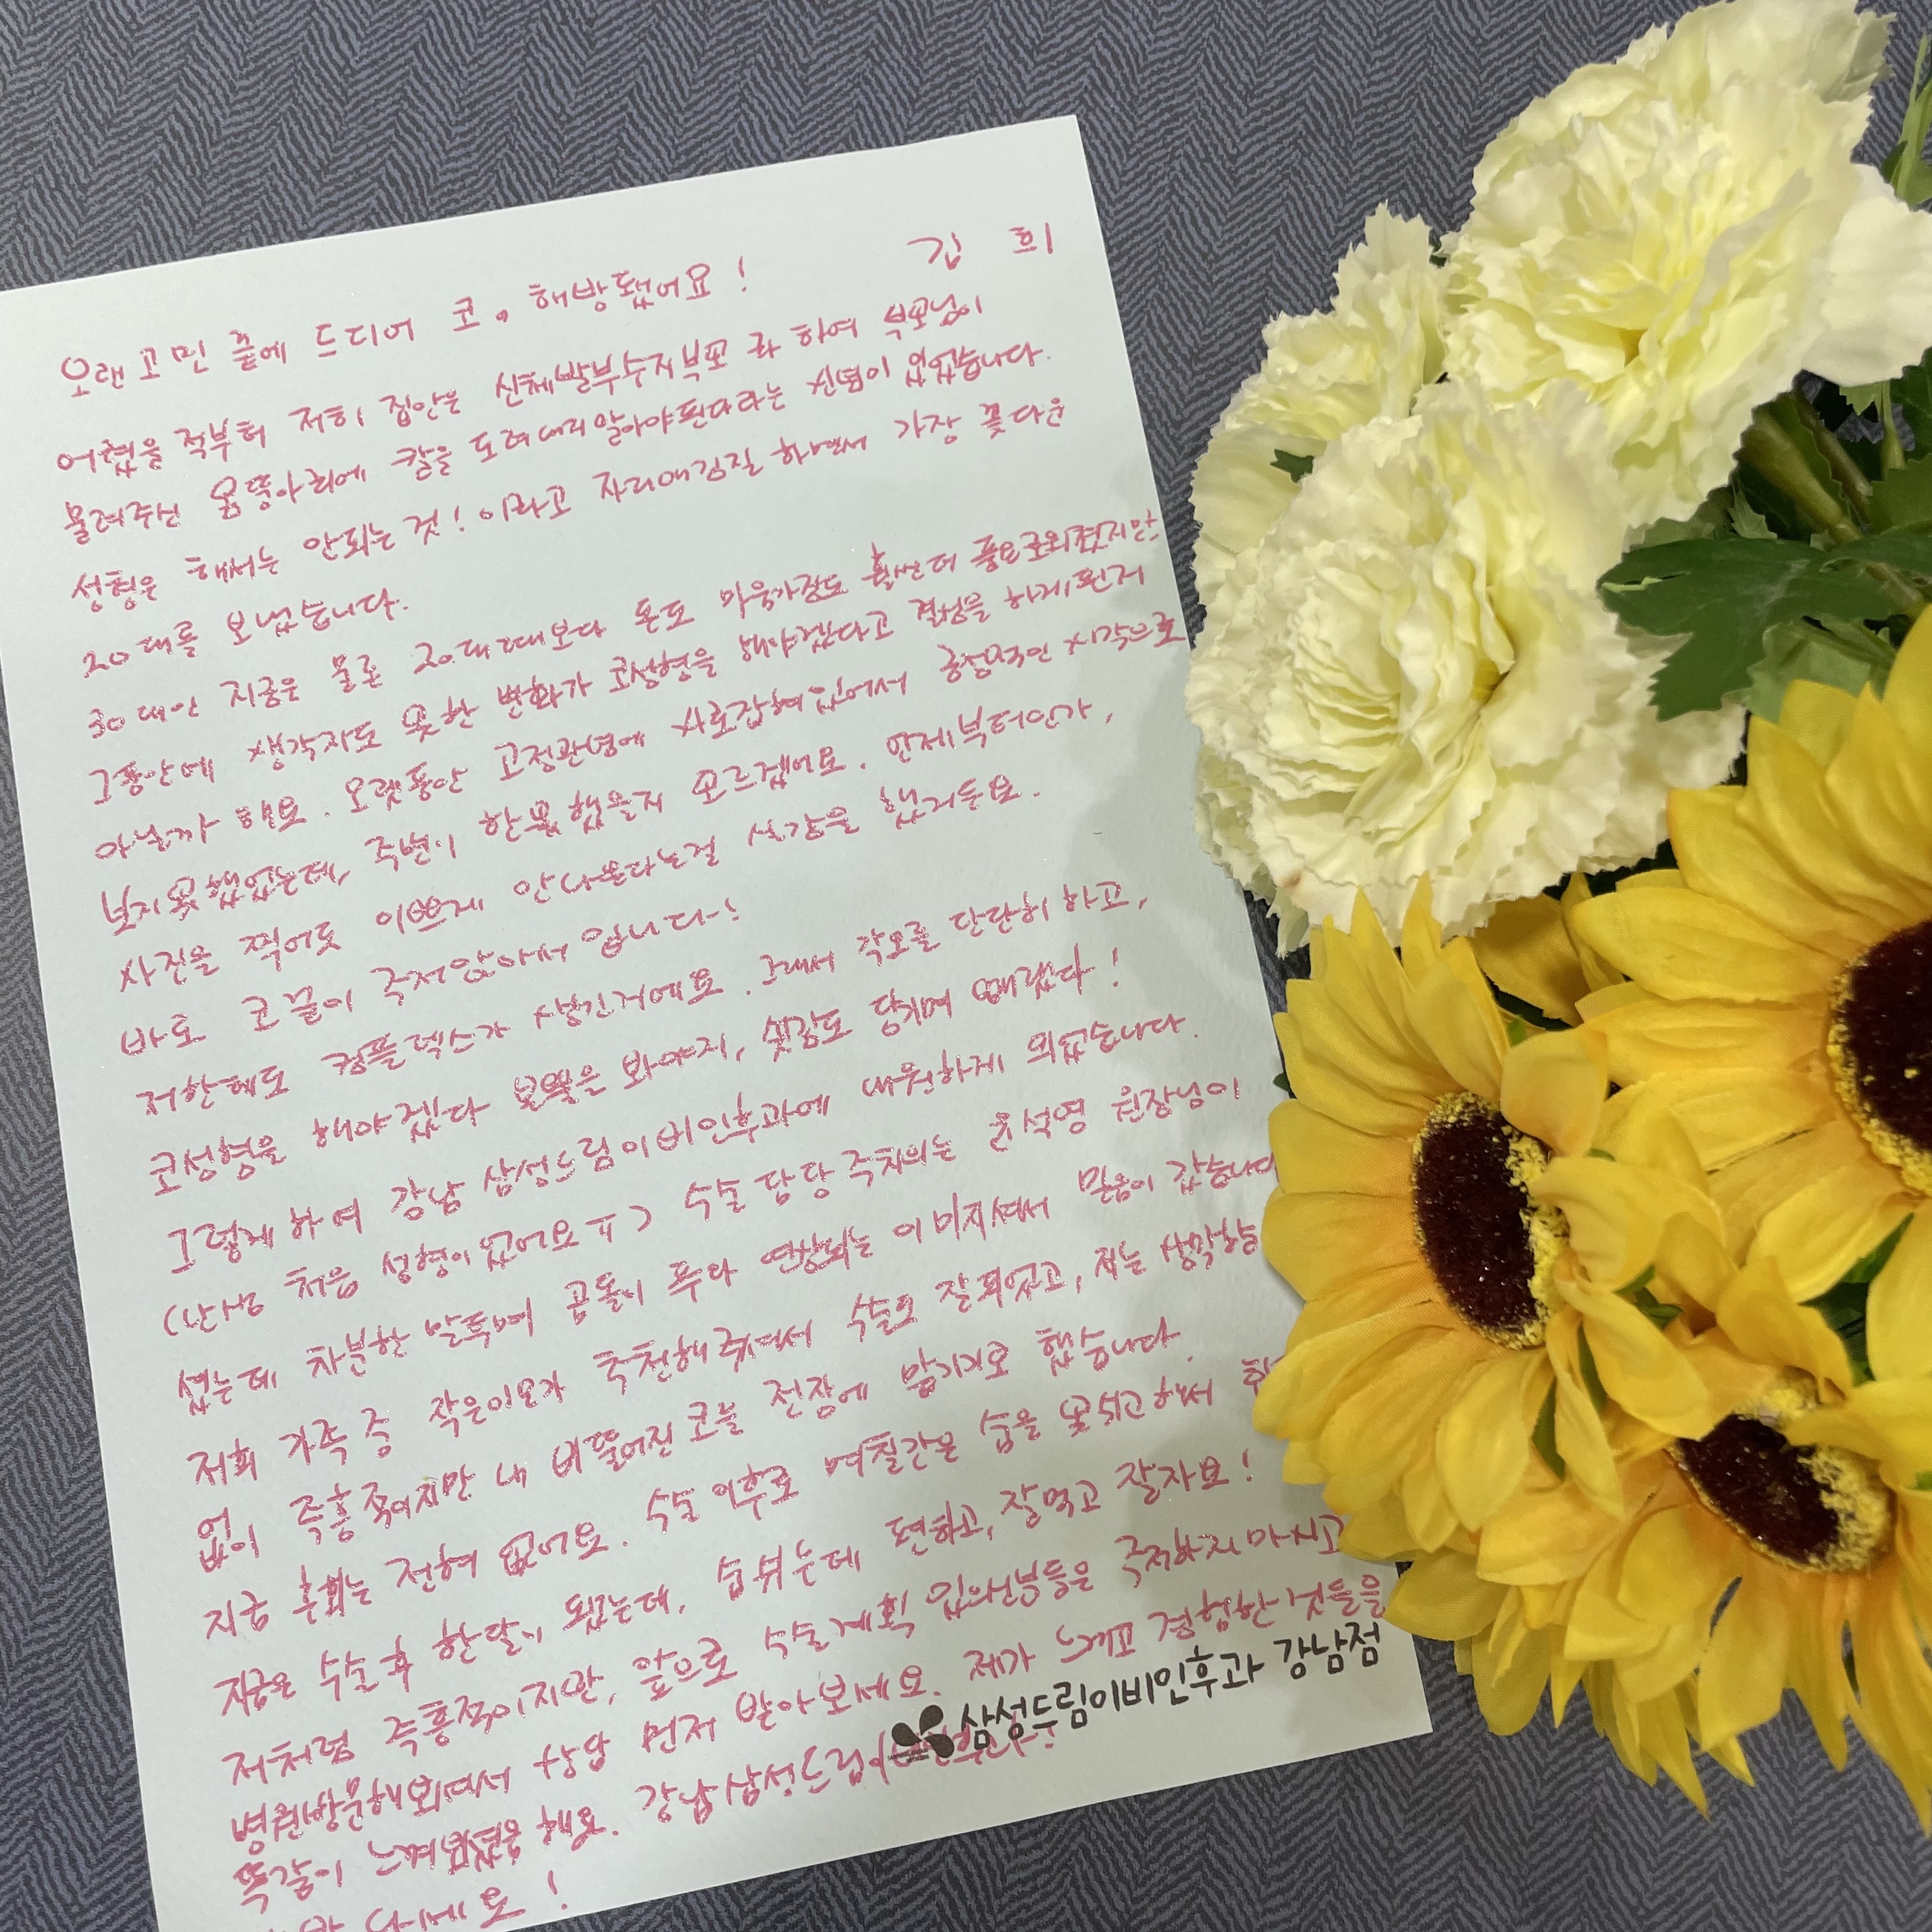 김 희
오랜 고민 끝에 드디어 코, 해방됐어요!
어렸을 적부터 저희 집안은 신체발부수지부모 라 하여 부모님이
물려주신 몸뚱아리에 칼을 도려내지말아야된다라는 신념이 있었습니다.
성형은 해서는 안되는 것! 이라고 자리매김질 하면서 가장 꽃다운
20대를 보냈습니다.
30대인 지금은 물론 20대때보다 돈도 마음가짐도 훨씬더 풍요로워졌지만
그동안에 생각지도 못한 변화가 코성형을 해야겠다고 결심을 하게된거
아닐까 해요. 오랫동안 고정관념에 사로잡혀있어서 긍정적인 시각으로
보지못했었는데, 주변이 한몫했을지 모르겠어요. 언제부터인가,
사진을 찍어도 이쁘게 안나온다는걸 실감을 했거든요.
바로 코끝이 주저앉아서 입니다~!
저한테도 컴플렉스가 생긴거에요. 그래서 각오를 단단히 하고,
코성형을 해야겠다 본때을 봐야지, 쇳뿔도 당기며 때렸다!
그렇게 하여 강남 삼성드림이비인후과에 내원하게 되었습니다.
(난생 처음 성형이었어요ㅠ) 수술담당 주치의는 윤석영 원장님이
셨는데 차분한 말투며 곰돌이 푸가 연상되는 이미지셔서 믿음이 갔습니다
저희 가족 중 작은이모가 추천해주셔서 수술도 잘되었고, 저는 생각한바
없이 즉흥적이지만 내 비뚤어진 코를 전장에 맡기기로 했습니다.
지금 후회는 전혀 없어요. 수술 이후로 며칠간은 숨을 못쉬고해서
지금은 수술후 한달이 됐는데, 숨쉬는데 편하고, 잘먹고 잘자요!
저처럼 즉흥적이지만, 앞으로 수술계획 있으신분들은 주저하지마시고
병원방문해보셔서 상담 먼저 받아보세요. 제가 느끼고 경험한것들을
똑같이 느껴봤음 해요. 강남삼성드림이
하세요!
삼성드림이비인후과 강남점